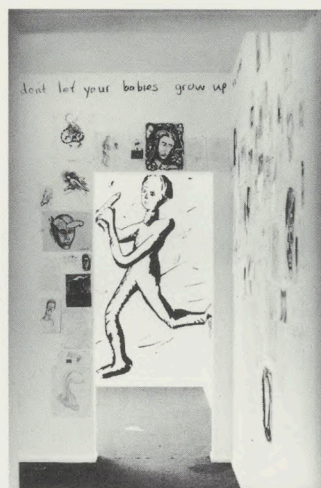 dont let your babies grow up